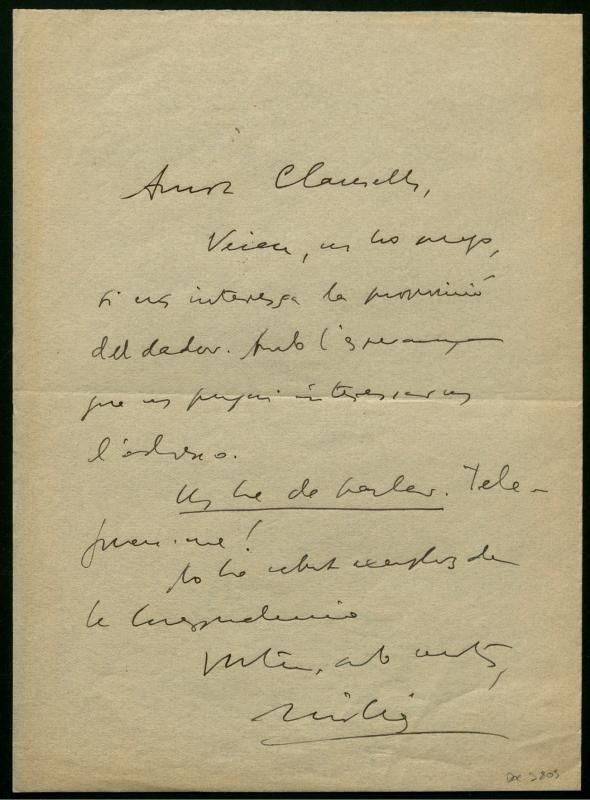 Amic Clausells,
Veieu, us ho prego,
si us interessa la proposició
del dador. Amb l'esperança
que us pugui interessar us
l'adreço.
Us he de parlar. Tele-
foneu-me!
No he rebut exemplars de
la Correspondència
Vostre, amb afecte,
Doc 3809